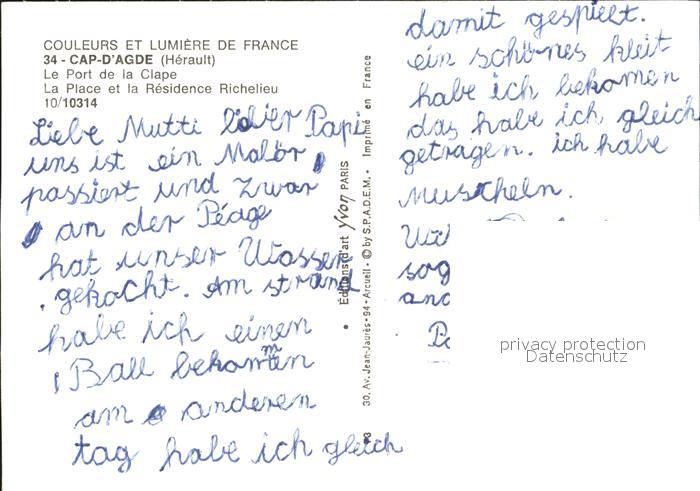 COULEURS ET LUMIÈRE DE FRANCE
34 - CAP-D'AGDE (Hérault)
Le Port de la Clape
La Place et la Résidence Richelieu
10/10314
Liebe Mutti lieber Papi
uns ist ein Malör
passiert und zwar
an der Péage
hat unser Wasser
gekocht. Am strand
habe ich einen
Ball bekommen
am anderen
tag habe ich gleich
Editions d'art Yvon PARIS
30, Av. Jean-Jaurès - 94 - Arcueil - © by S.P.A.D.E.M. - Imprimé en France
damit gespielt.
ein schönes kleit
habe ich bekomen
das habe ich gleich
getragen. ich habe
Muscheln.
sog
privacy protection
Datenschutz